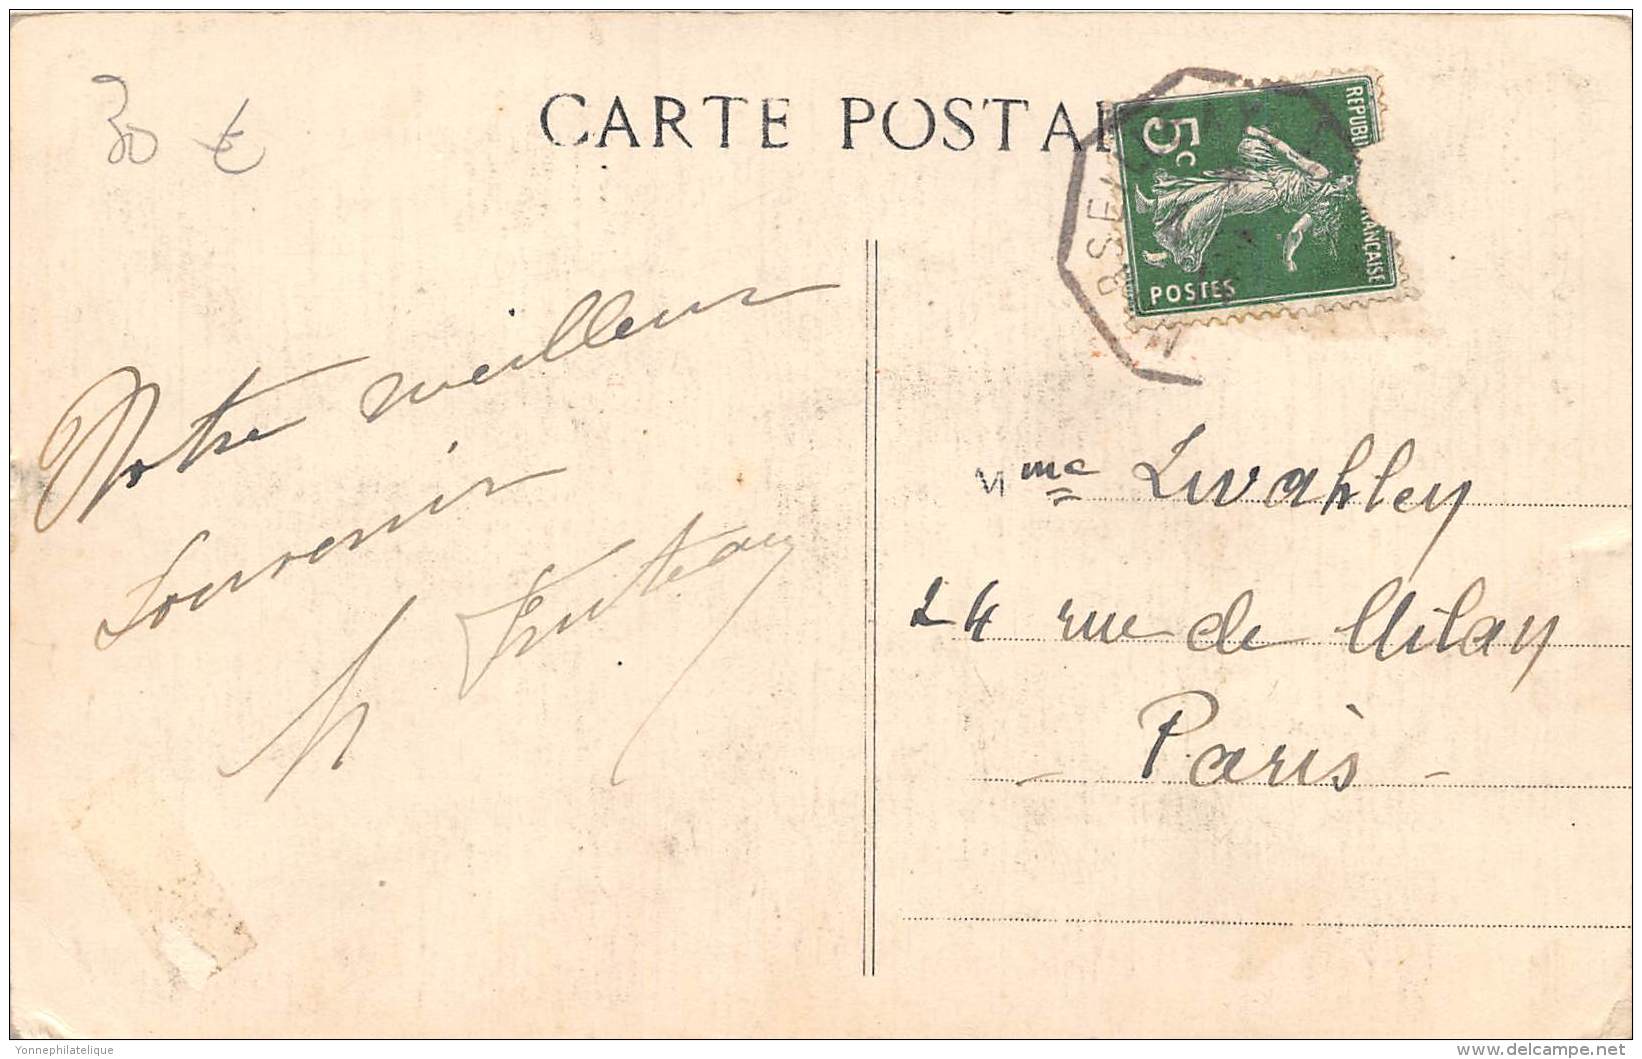 30 €
CARTE POSTA
REPUBL FRANÇAISE
5c
POSTES
Notre meilleur
souvenir
Mme Livahley
24 rue de Milan
Paris -
Yonnephilatelique
www.delcampe.net